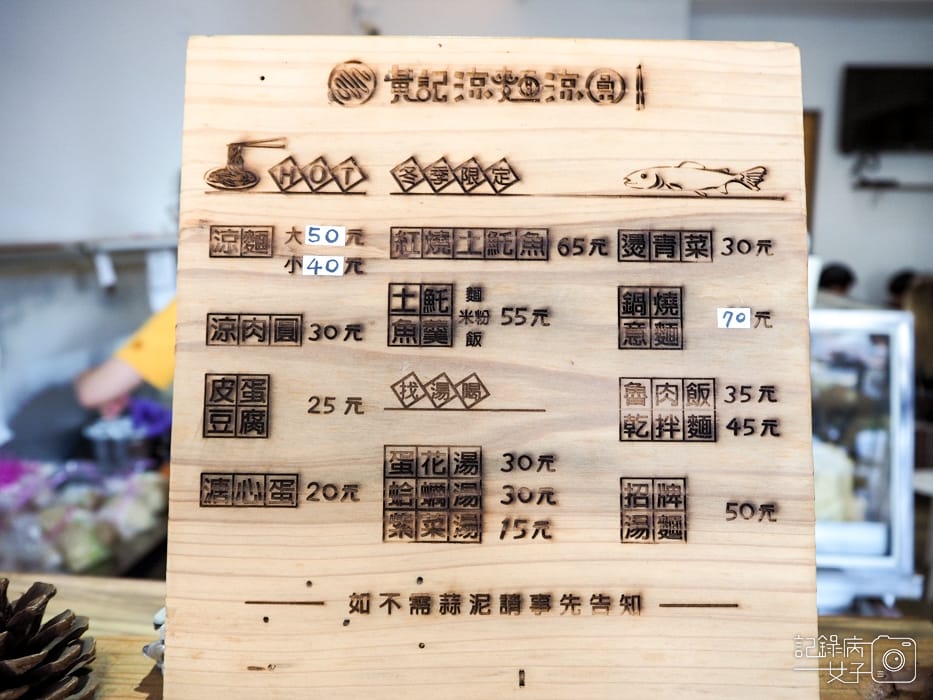 黃記涼麵涼圓
HOT
涼麵 大50元
小40元
涼肉圓 30元
皮蛋豆腐 25元
溏心蛋 20元
冬季限定
紅燒土魠魚 65元
土魠魚羹 麵 米粉 飯 55元
找湯喝
蛋花湯 30元
蛤蠣湯 30元
紫菜湯 15元
燙青菜 30元
鍋燒意麵 70元
魯肉飯 35元
乾拌麵 45元
招牌湯麵 50元
如不需蒜泥請事先告知
記錄病女子